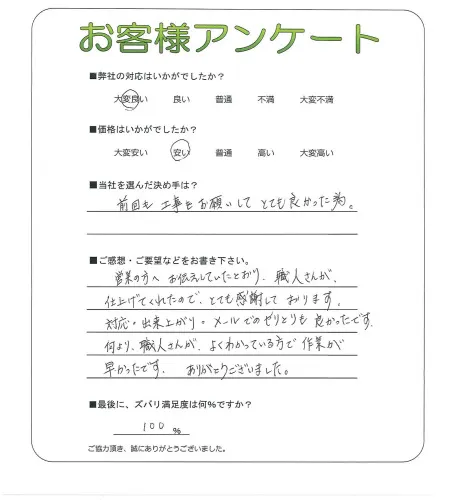 お客様アンケート
■弊社の対応はいかがでしたか？
大変良い 良い 普通 不満 大変不満
■価格はいかがでしたか？
大変安い 安い 普通 高い 大変高い
■当社を選んだ決め手は？
前回も工事をお願いしてとても良かった為。
■ご感想・ご要望などをお書き下さい。
営業の方へお伝えしていたとおり、職人さんが、
仕上げてくれたので、とても感謝しております。
対応・出来上がり・メールでのやりとりも良かったです。
何より、職人さんが、よくわかっている方で作業が
早かったです。 ありがとうございました。
■最後に、ズバリ満足度は何％ですか？
100 %
ご協力頂き、誠にありがとうございました。